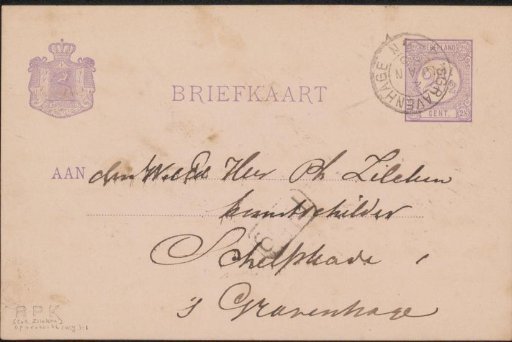 BRIEFKAART
NEDERLAND
'S GRAVENHAGE
CENT.
AAN den Wel Ed Heer Ph. Zilcken
kunstschilder
Schelpkade
's Gravenhage
RPK